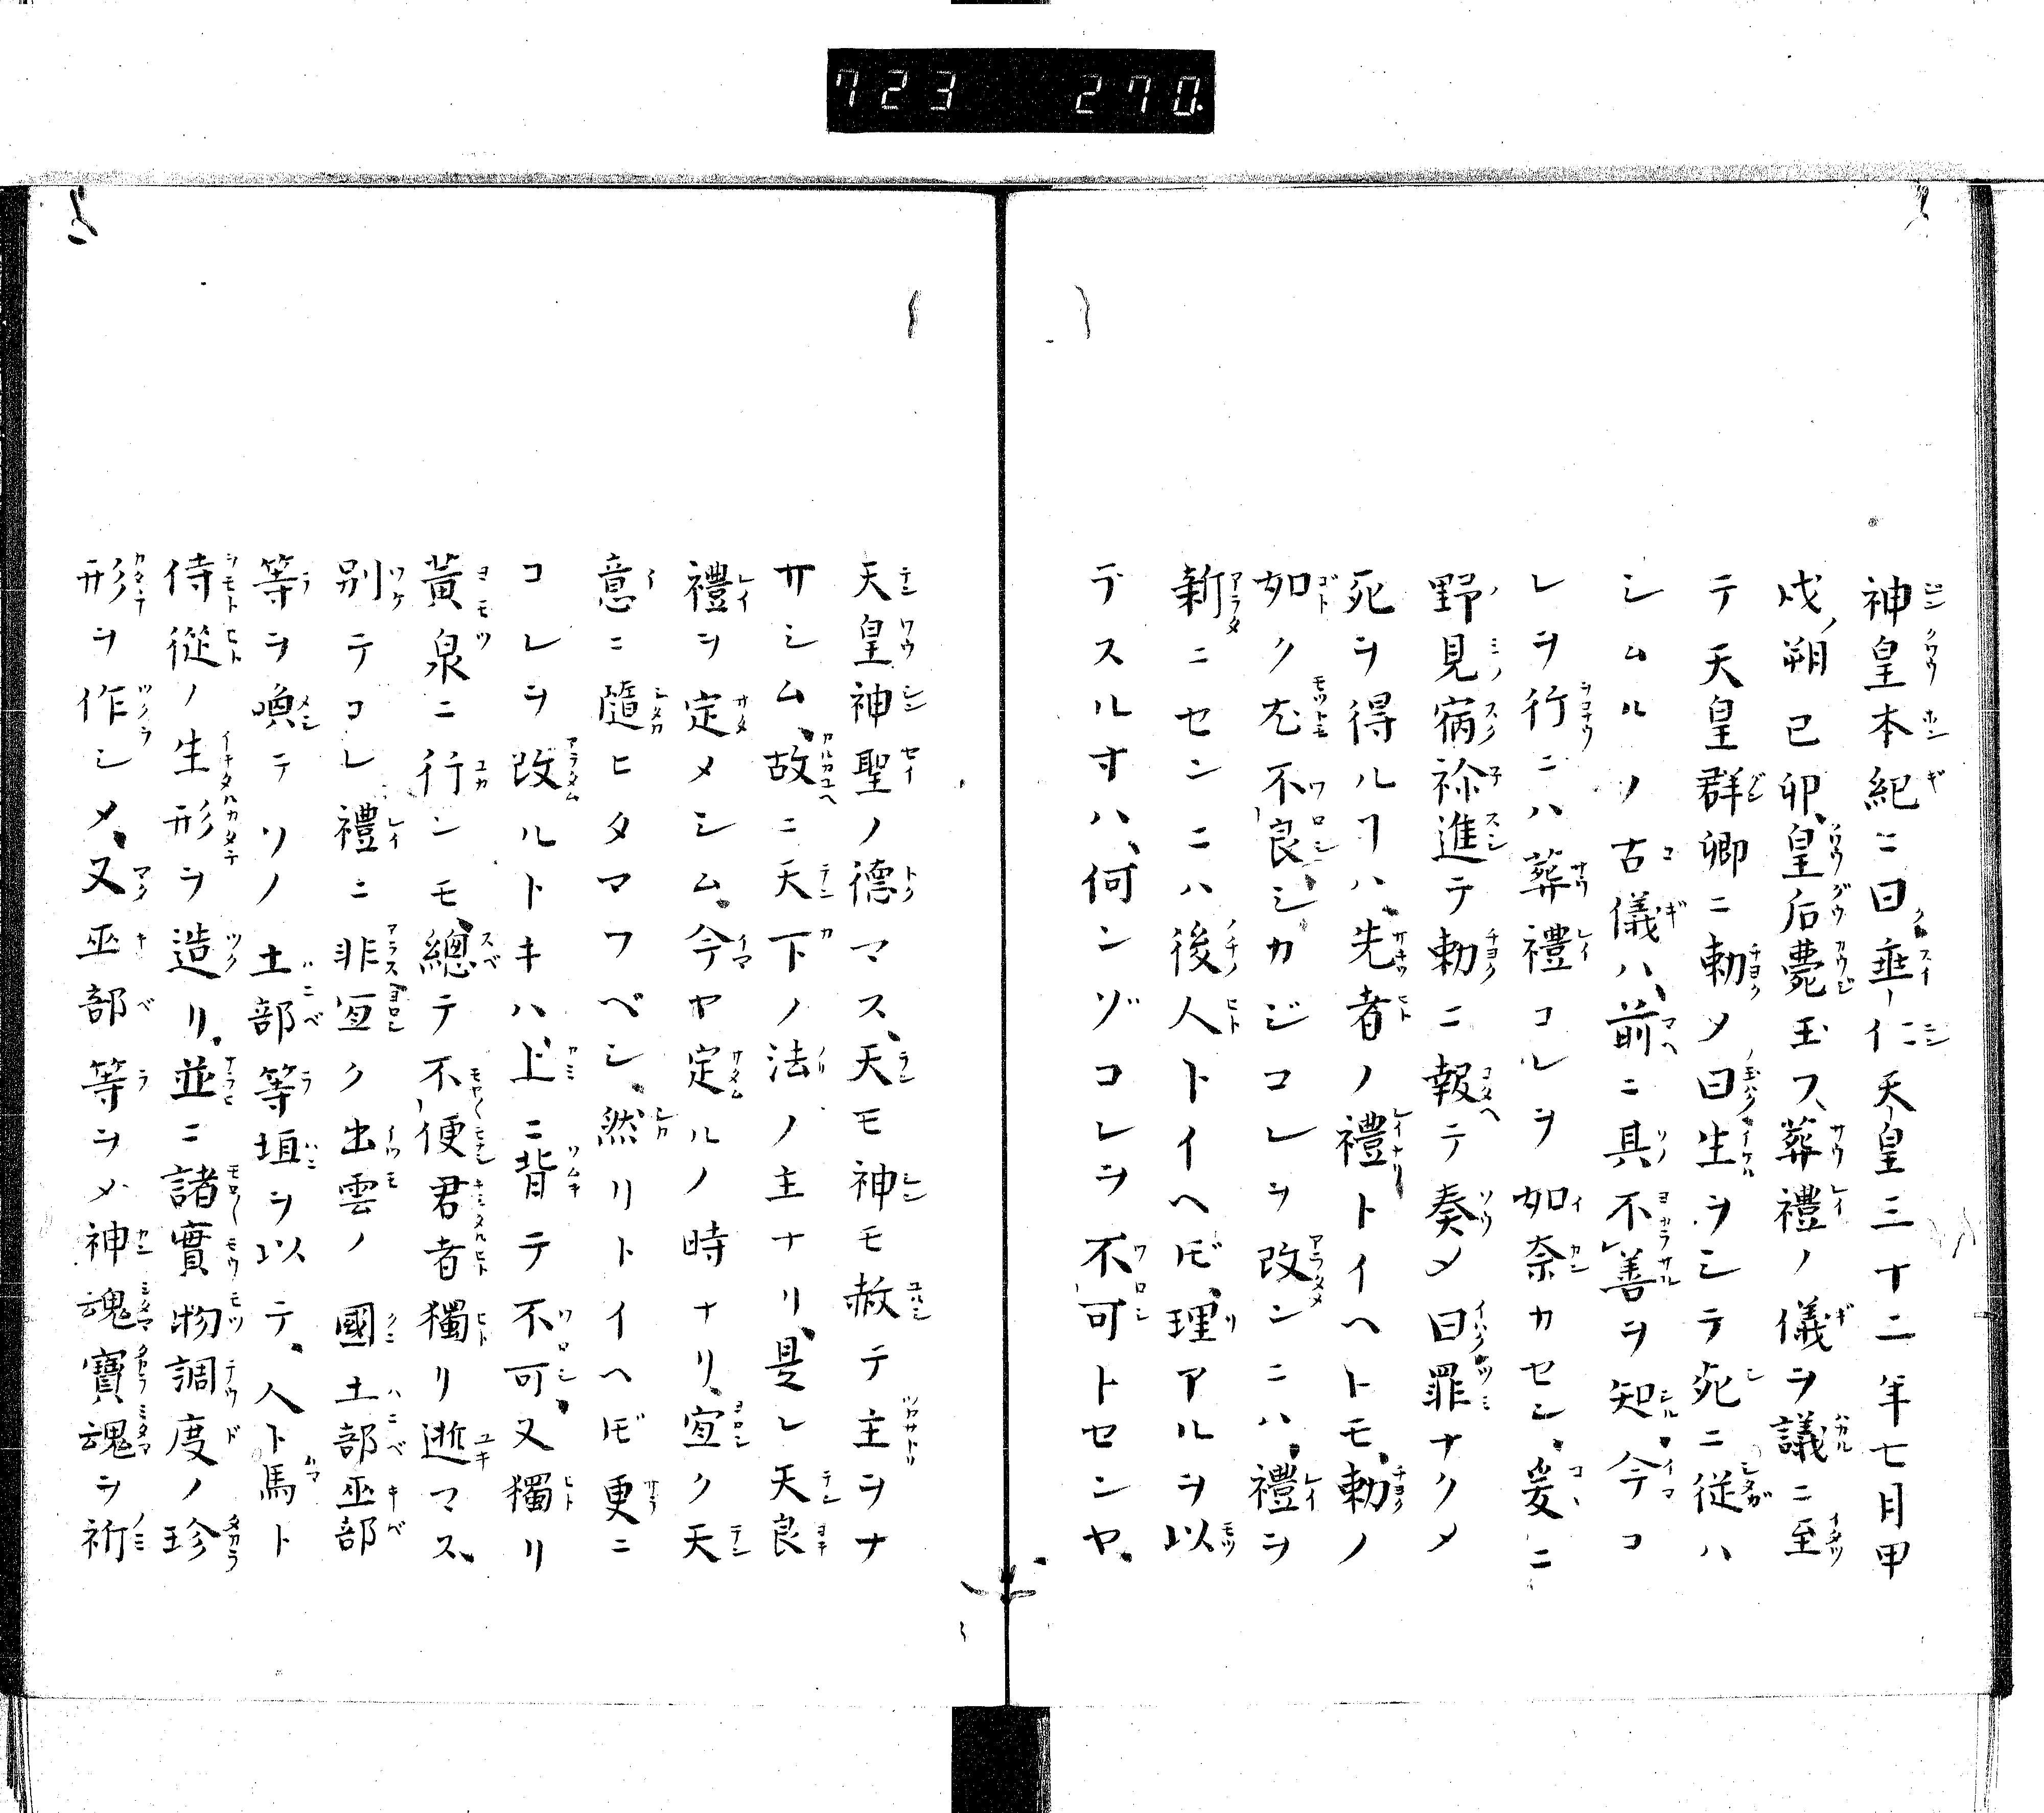 723 270.
神皇本紀ニ曰垂仁天皇三十二年七月甲
戌朔己卯皇后薨玉フ、葬禮ノ儀ヲ議ニ至
テ天皇群卿ニ勅メ曰生ヲシテ死ニ従ハ
シムルソ古儀ハ、前ニ具不善ヲ知、今コ
レヲ行ニハ葬禮コルヲ如奈カセン、爰ニ
野見宿祢進テ勅ニ報テ奏メ曰罪ナクメ
死ヲ得ルヿハ、先者ノ禮トイヘトモ、勅ノ
如ク尤不良、シカジコレヲ改ンニハ、禮ヲ
新ニセンニハ後人トイヘ𪜈、理アルヲ以
デスル寸ハ、何ンゾコレヲ不可トセンヤ、
天皇神聖ノ德マス、天モ神モ赦テ主ヲナ
サシム、故ニ天下ノ法ノ主ナリ、是レ天良
禮ヲ定メシム、今ヤ定ルノ時ナリ、宜ク天
意ニ隨ヒタマフベシ、然リトイヘ𪜈更ニ
コレヲ改ルトキハ、上ニ背テ不可、又獨リ
黄泉ニ行ンモ、總テ不便君者獨リ逝マス、
別テコレ禮ニ非宜ク出雲ノ國土部巫部
等ヲ喚テソノ土部等埴ヲ以テ、人ト馬ト
侍從ノ生形ヲ造リ、並ニ諸實物調度ノ珍
形ヲ作シメ、又巫部等ヲメ神魂寶魂ヲ祈